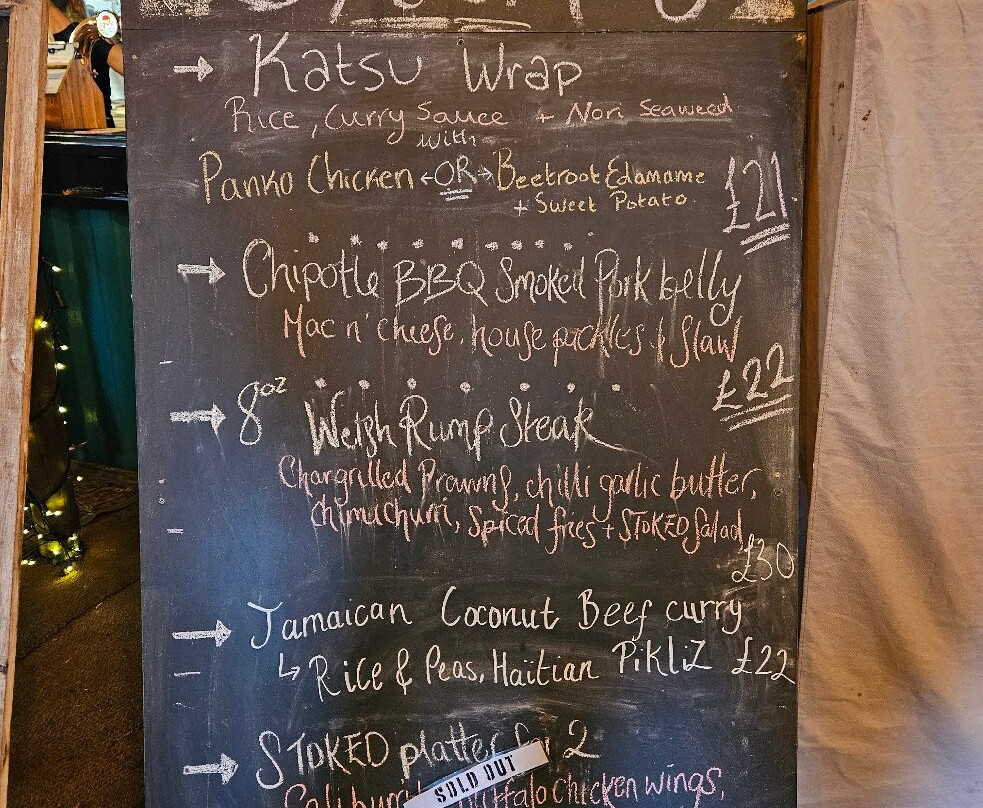 → Katsu Wrap
Rice, Curry Sauce + Nori Seaweed
with
Panko Chicken ←OR→ Beetroot Edamame
+ Sweet Potato
£21
→ Chipotle BBQ Smoked Pork belly
Mac n' cheese, house pickles & Slaw
£22
→ 8oz Welsh Rump Steak
Chargrilled Prawns, chilli garlic butter,
chimichurri, spiced fries + STOKED Salad
£30
→ Jamaican Coconut Beef curry
↳ Rice & Peas, Haïtian PiKliZ £22
→ STOKED platter for 2
SOLD OUT
buffalo chicken wings,